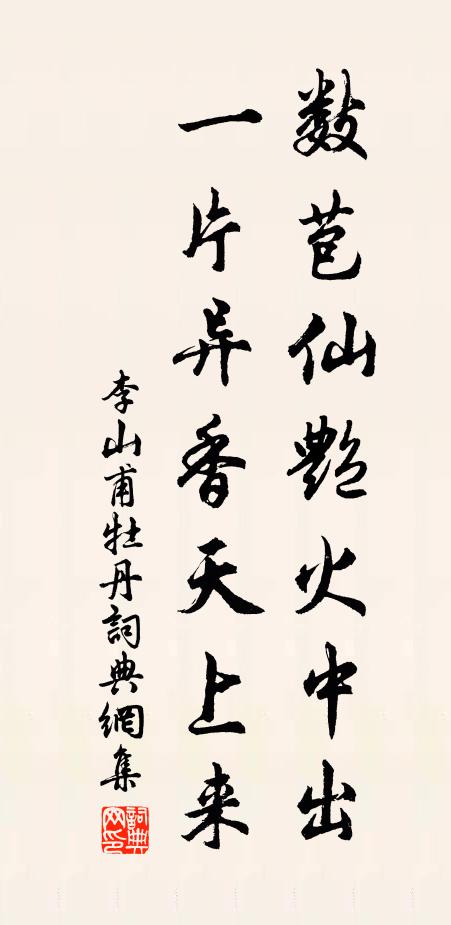 数苞仙艳火中出
一片异香天上来
李山甫牡丹詞典網集
詞典网印